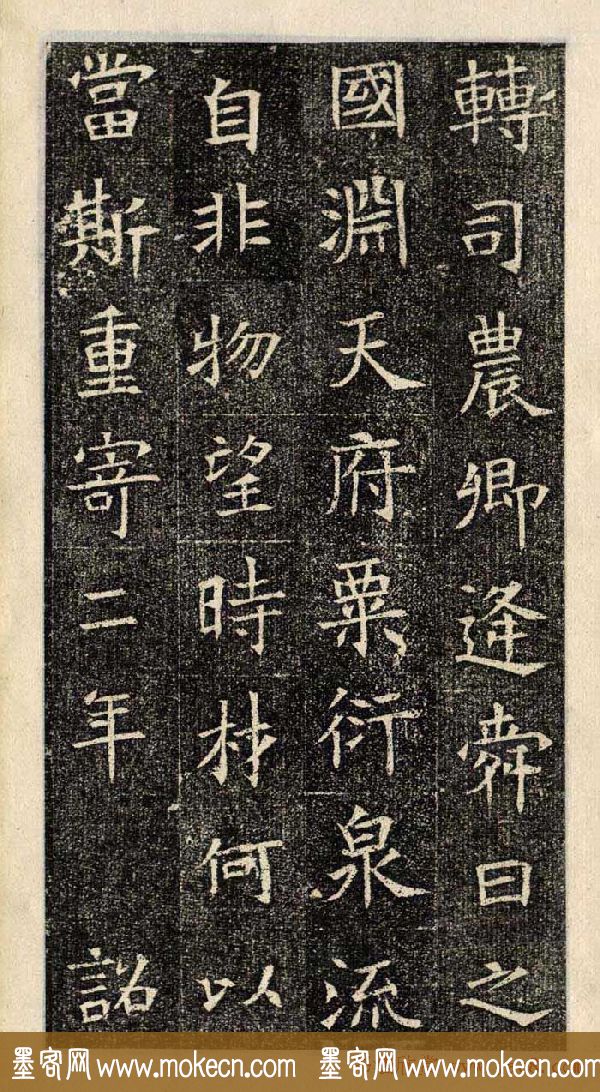 轉司農卿逄舜曰之
國淵天府粟衍泉流
自非物望時材何以
當斯重寄二年 詔
墨客网 www.mokecn.com 墨客网 www.mokecn.com